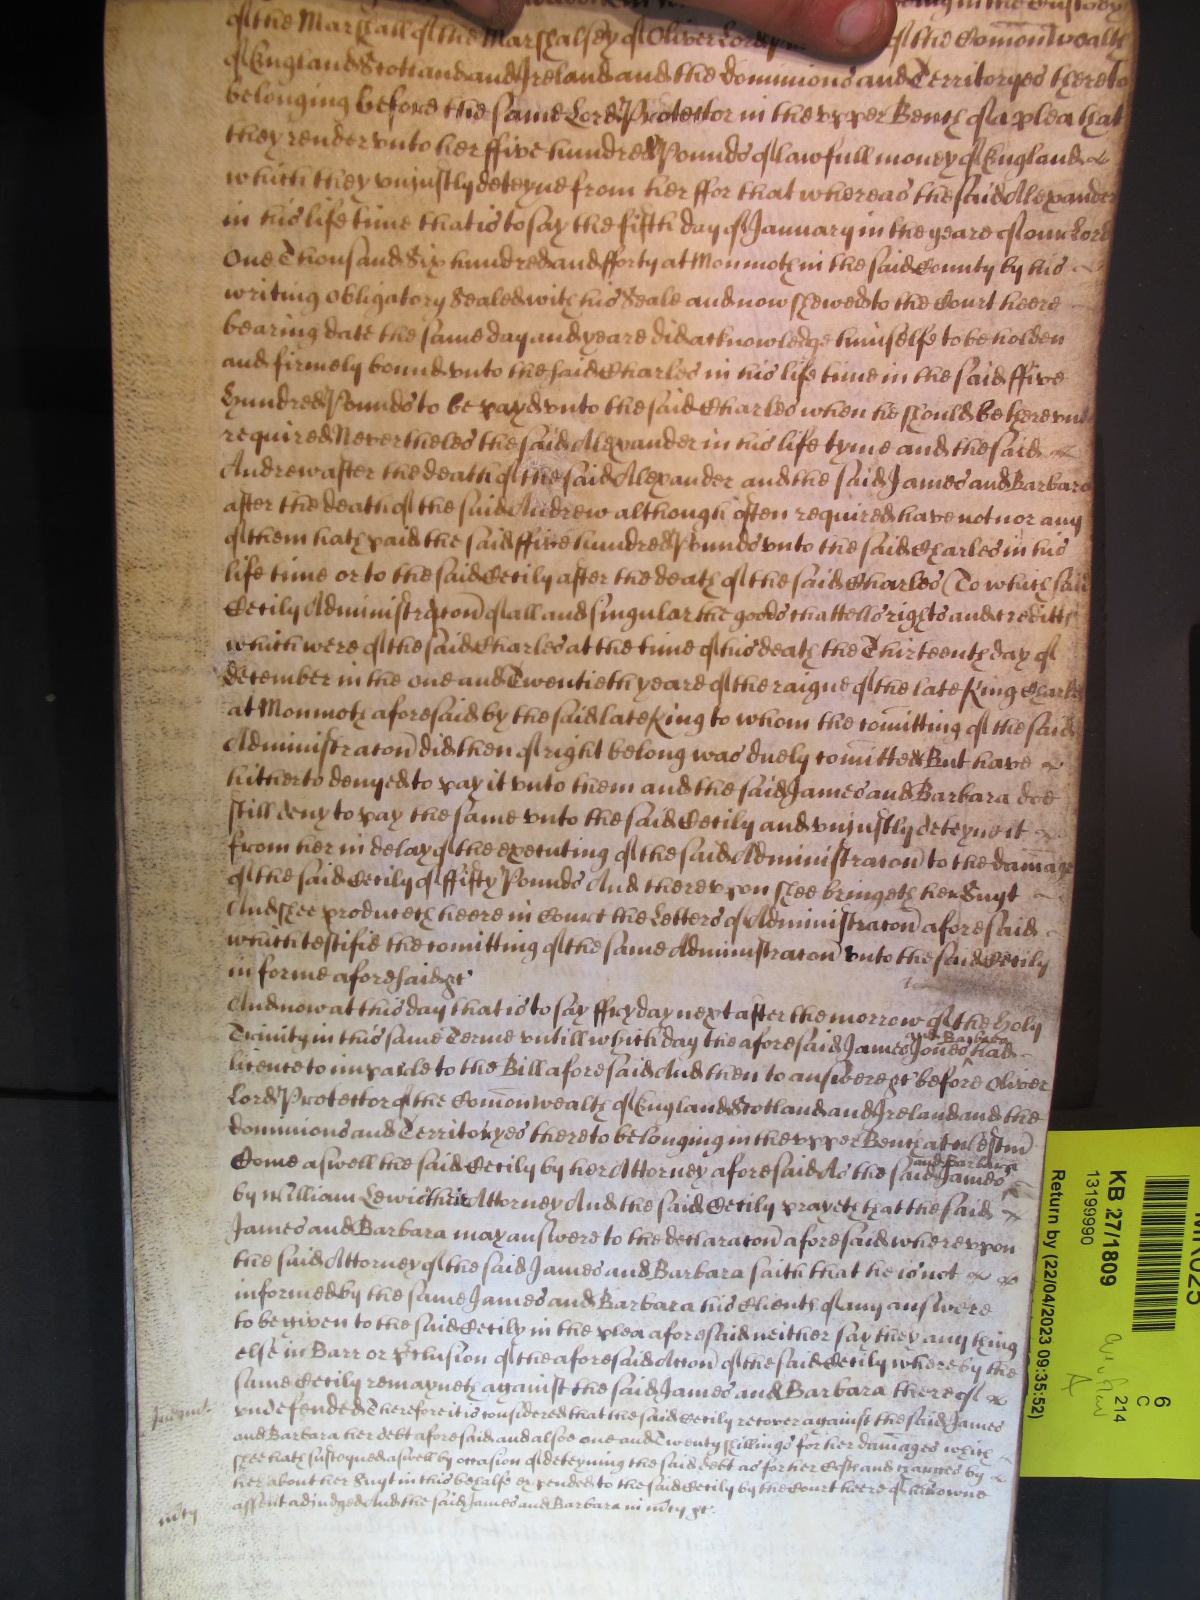 being in the Custody
of the Marshall of the Marshalsey of Oliver Lord of the Comonwealth
of England Scotland and Ireland and the dominions and Territoryes thereto
belonging before the same Lord Protector in the vpper Bench of a plea that
they render vnto her ffive hundred Pounds of lawfull money of England
which they vniustly deteyne from her ffor that whereas the said Alexander
in his life time that is to say the fifth day of January in the yeare of our Lord
One Thousand Six hundred and fforty at Monmoth in the said County by his
writing obligatory Sealed with his Seale and now shewed to the Court heere
bearing date the same day and yeare did acknowledge himselfe to be holden
and firmely bound vnto the said Charles in his life time in the said ffive
hundred Pounds to be payd vnto the said Charles when he should be therevnto
required Nevertheles the said Alexander in his life tyme and the said
Andrew after the death of the said Alexander and the said James and Barbara
after the death of the said Andrew although often required have not nor any
of them hath paid the said ffive hundred Pounds vnto the said Charles in his
life time or to the said Cecily after the death of the said Charles (To which said
Cecily Administracon of all and singular the goods chattells rights and creditts
which were of the said Charles at the time of his death the Thirteenth day of
december in the one and Twentieth yeare of the raigne of the late King Charles
at Monmoth aforesaid by the said late King to whom the comitting of the said
Administracon did then of right belong was duely comitted But have
hitherto denyed to pay it vnto them and the said James and Barbara doe
still deny to pay the same vnto the said Cecily and vniustly deteyne it
from her in delay of the executing of the said Administracon to the damage
of the said Cecily of ffifty Pounds And therevpon shee bringeth her Suyt
And shee produceth heere in Court the Letters of Administracon aforesaid
which testifie the comitting of the same Administracon vnto the said Cecily
in forme aforesaid &c
And now at this day that is to say ffryday next after the morrow of the Holy
Trinity in this same Terme vntill which day the aforesaid James Jones and Barbara had
licence to imparle to the Bill aforesaid And then to answere &c before Oliver
Lord Protector of the Comonwealth of England Scotland and Ireland and the
dominions and Territoryes thereto belonging in the vpper Bench at Westm
Come aswell the said Cecily by her Attorney aforesaid As the said James and Barbara
by William Lewis their Attorney And the said Cecily prayeth that the said
James and Barbara may answere to the declaracon aforesaid wherevpon
the said Attorney of the said James and Barbara saith that he is not
informed by the same James and Barbara his Clients of any answere
to be given to the said Cecily in the plea aforesaid neither say they any thing
else in Barr or preclusion of the aforesaid Accon of the said Cecily whereby the
same Cecily remayneth against the said James and Barbara thereof
vndefended Therefore it is considered that the said Cecily recover against the said James
and Barbara her debt aforesaid and alsoe one and Twenty shillings for her damages which
shee hath susteyned aswell by occasion of deteyning the said debt as for her Costs and charges by
her about her Suyt in this behalfe expended to the said Cecily by the Court heere of his owne
assent adiudged And the said James and Barbara in mcy &c
Judgmt
mcy
KB 27/1809
13199990
Return by (22/04/2023 09:35:52)
6
C
214
A